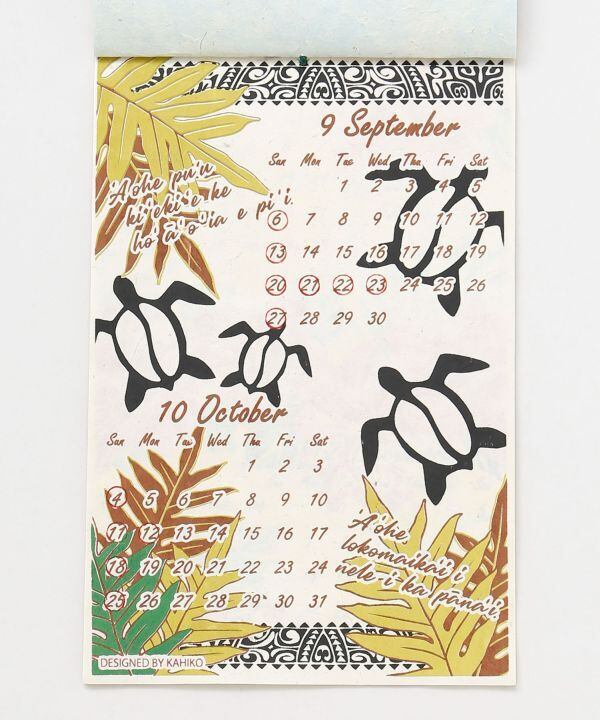 9 September
Sun Mon Tue Wed Thu Fri Sat
1 2 3 4 5
6 7 8 9 10 11 12
13 14 15 16 17 18 19
20 21 22 23 24 25 26
27 28 29 30
'A'ohe pu'u
ki'eki'e ke
ho'ā'o'ia e pi'i.
10 October
Sun Mon Tue Wed Thu Fri Sat
1 2 3
4 5 6 7 8 9 10
11 12 13 14 15 16 17
18 19 20 21 22 23 24
25 26 27 28 29 30 31
'A'ohe
lokomaika'i i
nele-i-ka pāna'i.
DESIGNED BY KAHIKO